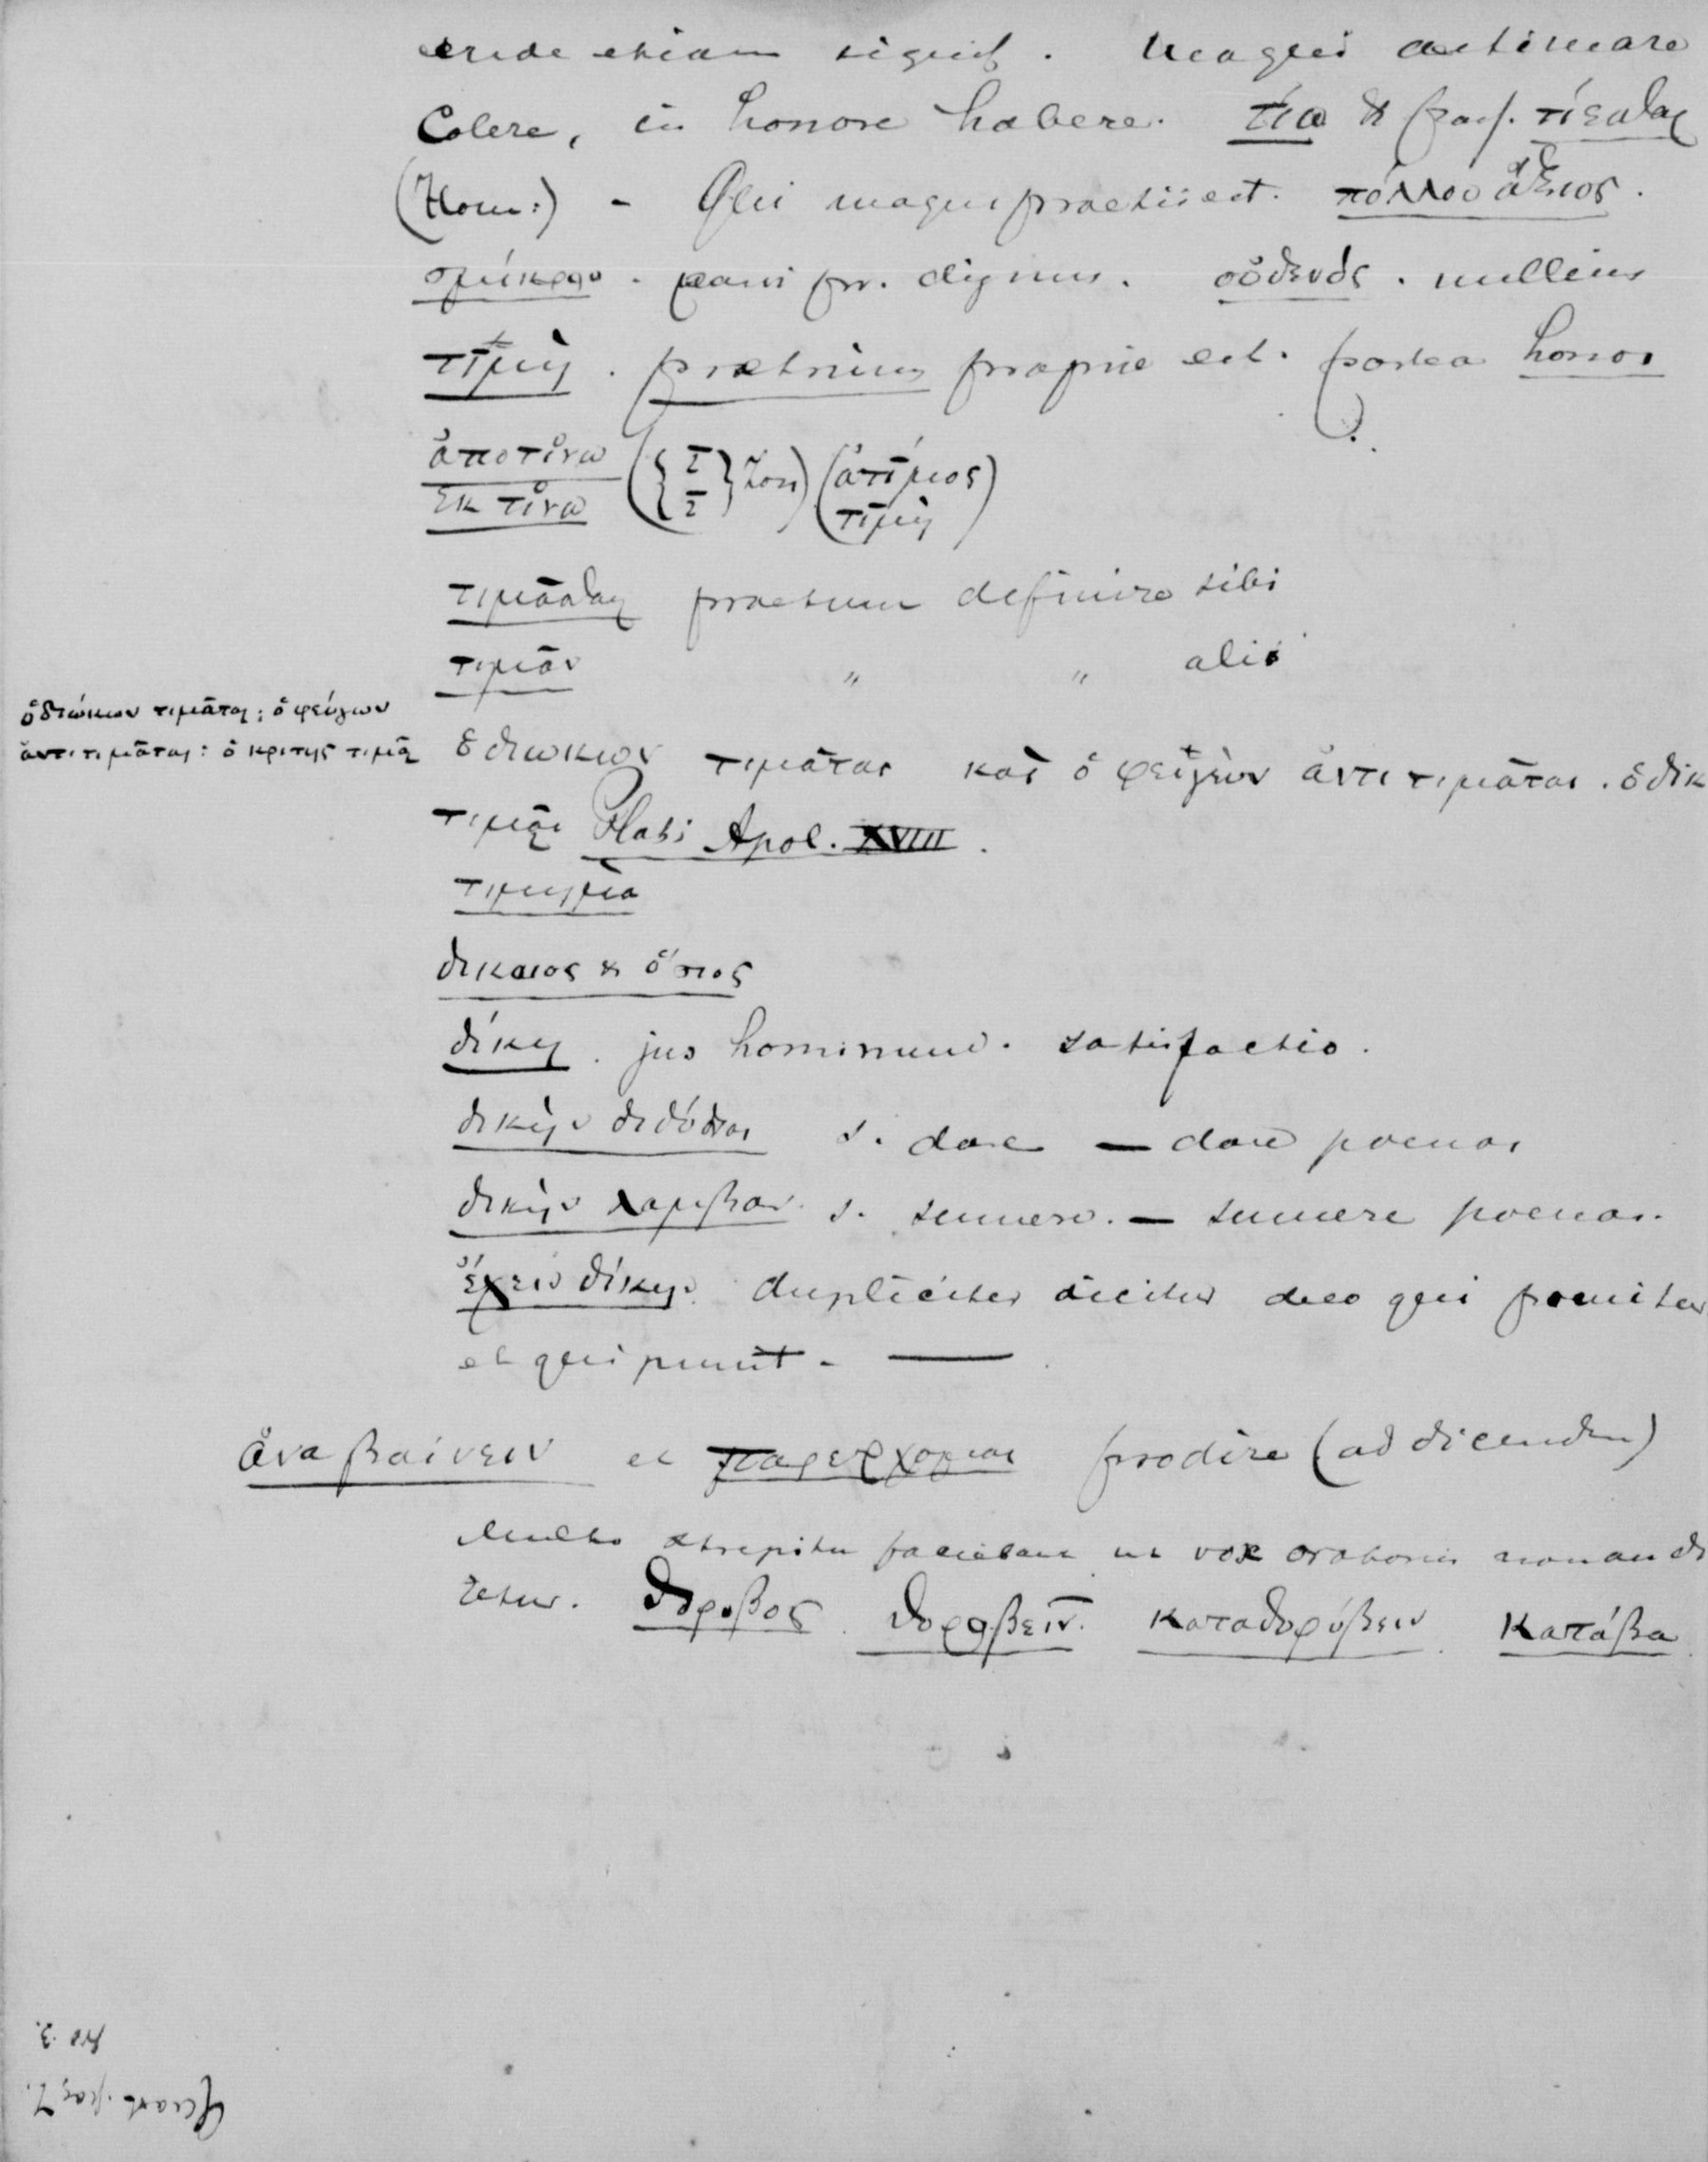 inde etiam signif. Magni aestimare
Colere, in honore habere. τίω & pass. τίεσθαι
(Hom:) - Qui magni praetii est. πόλλου ἄξιος.
σμίκρου. parvi pr. dignus. οὐδενός. nullius
τῑμή. praetium proprie est. postea honos
ἀποτίνω
ἐκτίνω ({ῑ ῐ} Hom) (ἀτίμιος τῑμή)
τιμᾶσθαι praetium definire sibi
τιμᾶν " " alii
ὁ διώκων τιμᾶται; ὁ φεύγων
ἀντιτιμᾶται: ὁ κριτης τιμᾷ
ὁ διωκων τιμᾶται καὶ ὁ φεύγων ἀντιτιμᾶται. ὁ δικ
τιμᾷ Plat: Apol. XVIII.
τιμημα
δικαιος & ὅσιος
δίκη. jus hominum. satisfactio.
δικὴν διδόναι s. dare — dare poenas
δικὴν λαμβαν. s. sumere. — sumere poenas.
ἔχειν δίκην. dupliciter dicitur de eo qui punitur
et qui punit. —
ἀναβαίνειν et παρερχομαι prodire (ad dicendum)
Multo strepitu faciebant ut vox oratoris non audi
retur. θορυβος. θορυβειν. καταθορύβειν. κατάβα.
pro 3.
pag 7.